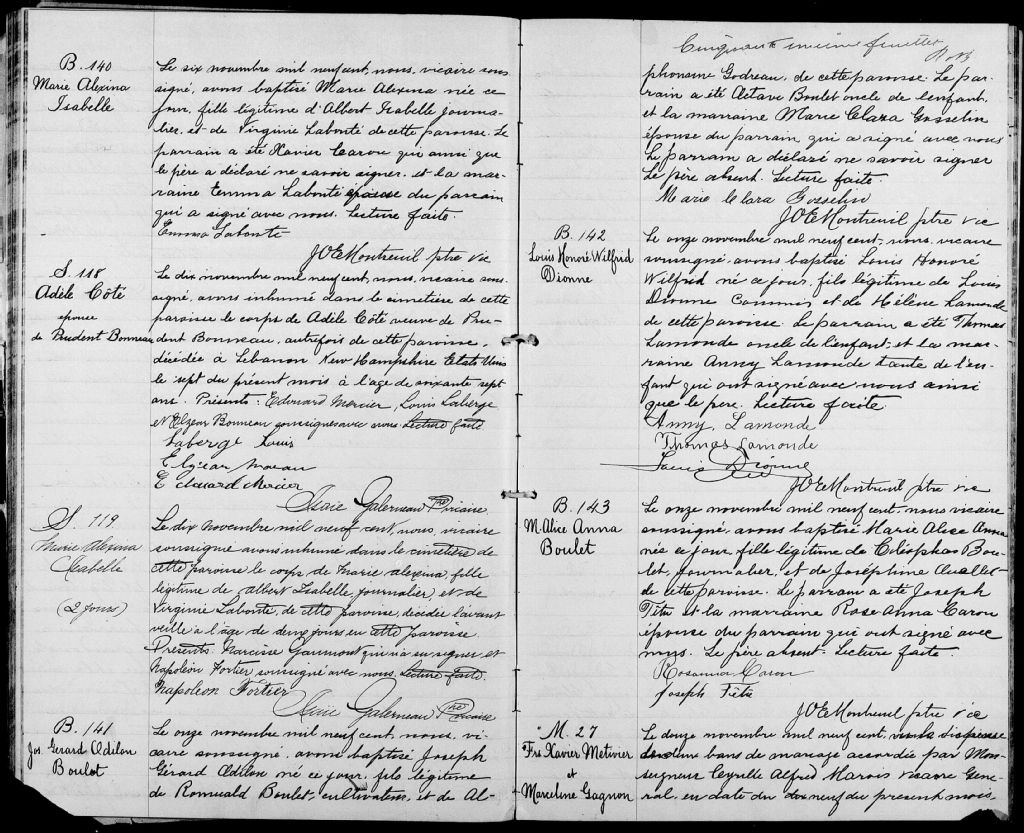 B. 140
Marie Alexina
Isabelle
Le six novembre mil neuf cent, nous, vicaire sous
signé, avons baptisé Marie Alexina née ce
jour, fille légitime d'Albert Isabelle journa-
lier, et de Virginie Labonté de cette paroisse. Le
parrain a été Xavier Carou qui ainsi que
le père a déclaré ne savoir signer, et la mar-
raine Emma Labonté épouse du parrain
qui a signé avec nous. Lecture faite.
Emma Labonté
JOEMontreuil ptre vic
S. 118
Adèle Côté
epouse
de Prudent Bonneau
Le dix novembre mil neuf cent, nous, vicaire sous-
signé, avons inhumé dans le cimetière de cette
paroisse le corps de Adèle Côté veuve de Pru-
dent Bonneau, autrefois de cette paroisse,
décédée à Lebanon New Hampshire Etats Unis
le sept du présent mois à l'age de soixante sept
ans. Présents: Edouard Mercier, Louis Laberge
et Elzéar Bonneau soussignés avec nous Lecture faite
Laberge Louis
Elzéar
Edouard Mercier
Galerneau Ptre vicaire
S. 119
Marie Alexina
Isabelle
(2 jours)
Le dix novembre mil neuf cent, nous, vicaire
soussigné avons inhumé dans le cimetière de
cette paroisse le corps de Marie Alexina, fille
légitime de Albert Isabelle, journalier, et de
Virginie Labonté, de cette paroisse, décédée l'avant
veille à l'âge de deux jours en cette paroisse.
Présents: Narcisse Gaumont qui n'a su signer et
Napoléon Fortier soussigné avec nous, Lecture faite.
Napoléon Fortier
Galerneau Ptre vicaire
B. 141
Jos. Gérard Odilon
Boulet
Le onze novembre mil neuf cent, nous, vi-
caire soussigné, avons baptisé Joseph
Gérard Odilon né ce jour, fils légitime
de Romuald Boulet, cultivateur, et de Al-
Cinquante unième feuillet
phonsine Godreau, de cette paroisse. Le par-
rain a été Octave Boulet oncle de l'enfant,
et la marraine Marie Clara Gosselin
épouse du parrain, qui a signé avec nous
Le parrain a déclaré ne savoir signer
Le père absent. Lecture faite.
Marie Clara Gosselin
JOEMontreuil ptre vic
B. 142
Louis Honoré Wilfrid
Dionne
Le onze novembre mil neuf cent, nous, vicaire
soussigné, avons baptisé Louis Honoré
Wilfrid né ce jour, fils légitime de Louis
Dionne Commis et de Hélène Lamonde
de cette paroisse. Le parrain a été Thomas
Lamonde oncle de l'enfant et la mar-
raine Anny Lamonde tante de l'en-
fant qui ont signé avec nous ainsi
que le père. Lecture faite
Anny Lamonde
Thomas Lamonde
Louis Dionne
JOEMontreuil ptre vic
B. 143
M. Alice Anna
Boulet
Le onze novembre mil neuf cent, nous vicaire
soussigné, avons baptisé Marie Alice Anna
née ce jour, fille légitime de Cléophas Bou-
let, journalier, et de Joséphine Ouellet
de cette paroisse. Le parrain a été Joseph
Têtu et la marraine Rose Anna Caron
épouse du parrain qui ont signé avec
nous. Le père absent. Lecture faite.
Rosanna Caron
Joseph Têtu
JOEMontreuil ptre vic
M. 27
Frs Xavier Metivier
et
Marceline Gagnon
Le douze novembre mil neuf cent, vu la dispense
de deux bans de mariage accordée par Mon-
seigneur Cyrille Alfred Marois vicaire Géné-
ral, en date du dix neuf du présent mois,